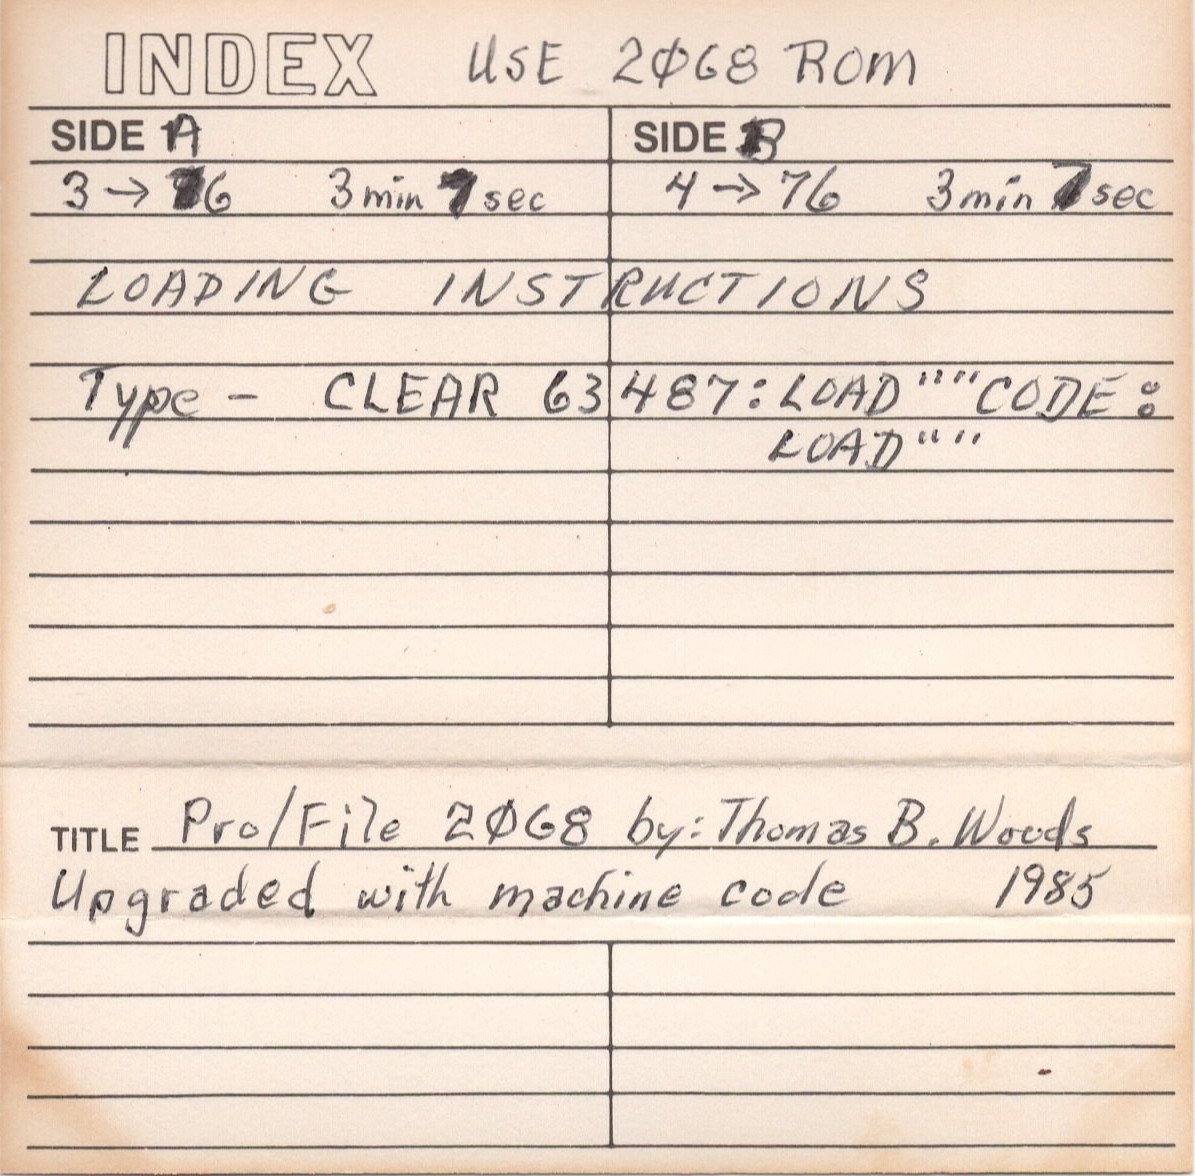 INDEX USE 2068 ROM
SIDE A SIDE B
3 → 76 3 min 7 sec 4 → 76 3 min 7 sec
LOADING INSTRUCTIONS
Type - CLEAR 63487: LOAD "" CODE:
LOAD ""
TITLE Pro/File 2068 by: Thomas B. Woods
Upgraded with machine code 1985